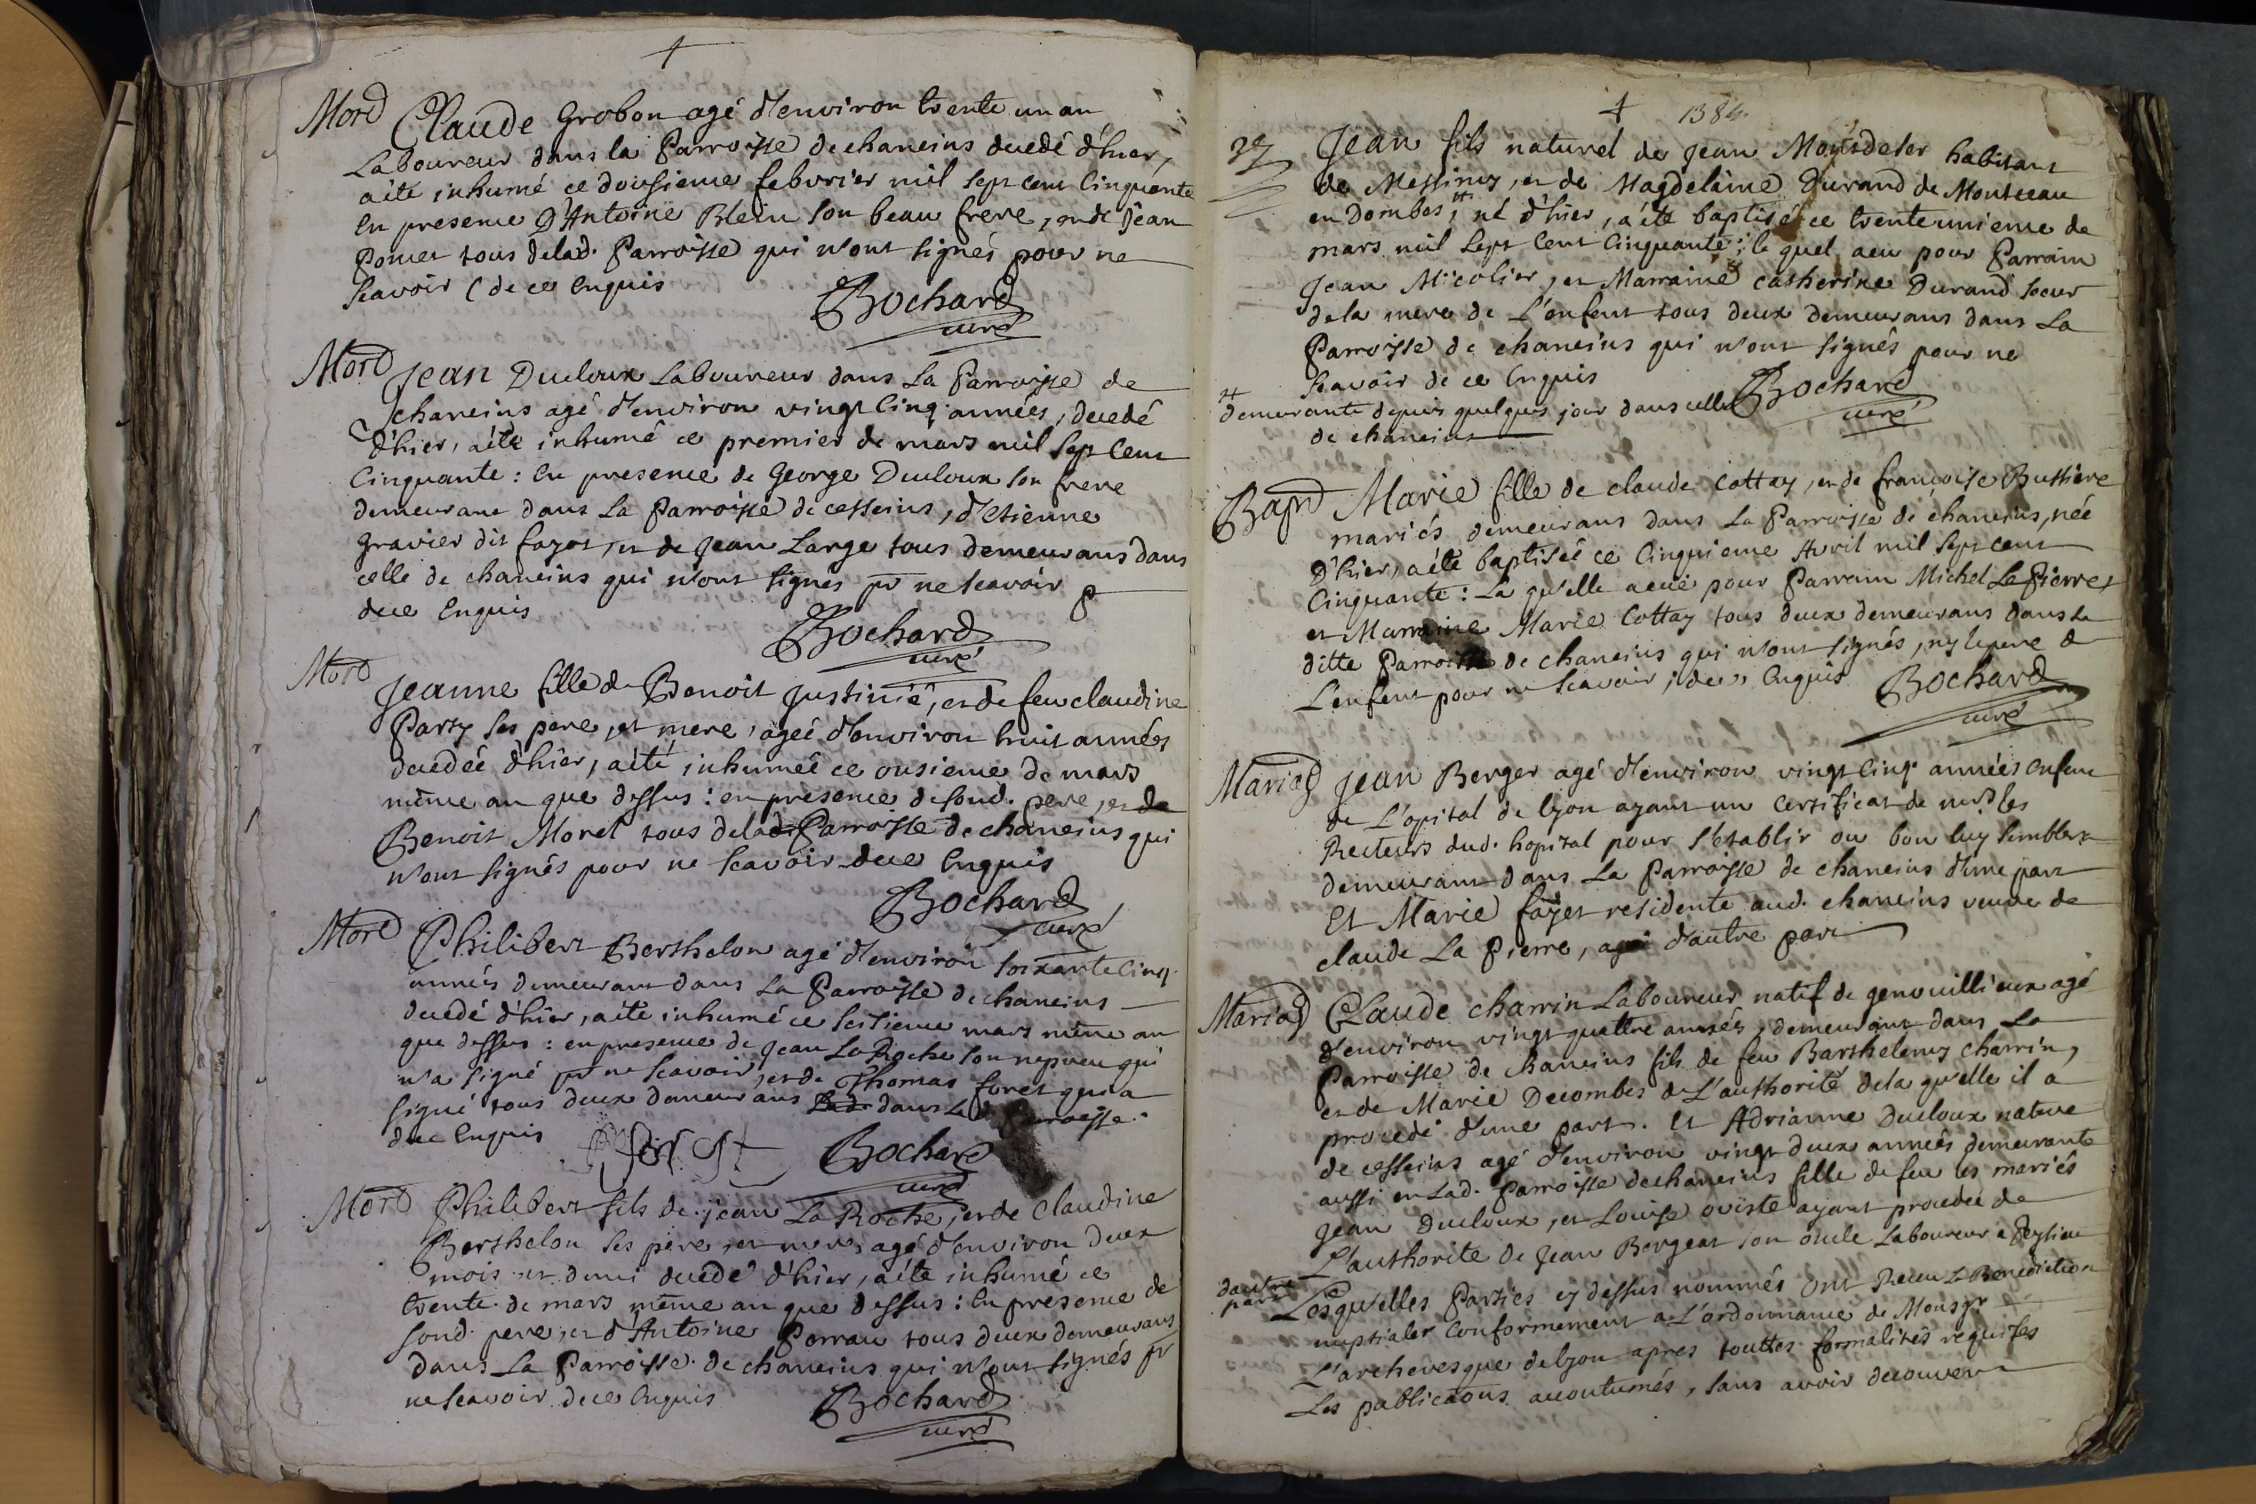 Mort Claude Grobon agé d'environ trente un an
Laboureur dans la Parroisse de chaneins decedé d'hier,
a été inhumé ce dousieme febvrier mil sept cent Cinquante
En presence D'Antoine Blein son beau frere, et de Jean
Pomet tous de lad. Parroisse qui n'ont signés pour ne
scavoir de ce Enquis
Bochard
curé
Mort Jean Ducloux Laboureur dans La Parroisse de
chaneins agé d'environ vingt Cinq années, decedé
d'hier, a été inhumé ce premier de mars mil sept Cent
Cinquante : En presence de George Ducloux son frere
demeurant dans La Parroisse de cesseins, d'etienne
gravier dit fayot, et de Jean Large tous demeurans dans
celle de chaneins qui n'ont signes pr ne scavoir
de ce Enquis
Bochard
curé
Mort
Jeanne fille de Benoit Justinié, et de feu claudine
Party ses pere, et mere, ageé d'environ huit années
decedeé d'hier, a été inhumeé ce onsieme de mars
même an que dessus : en presence de sond. pere, et de
Benoit Morel tous de lad. Parroisse de chaneins qui
n'ont signés pour ne scavoir de ce Enquis
Bochard
curé
Mort Philibert Berthelon agé d'environ soixante Cinq
années demeurant dans La Parroisse de chaneins
decedé d'hier, a été inhumé ce seisieme mars même an
que dessus : en presence de Jean La Roche son nepveu qui
n'a signé pr ne scavoir, et de Thomas foret qui a
signé tous deux demeurans dans Lad. Parroisse.
de ce Enquis
Bochard
curé
Mort Philibert fils de jean La Roche, et de Claudine
Berthelon ses pere, et mere, agé d'environ deux
mois et demi decedé d'hier, a été inhumé ce
trente de mars même an que dessus : En presence de
sond. pere, et d'Antoine Perrau tous deux demeurans
dans La Parroisse de chaneins qui n'ont signés pr
ne scavoir de ce Enquis
Bochard
curé
1384
Jean fils naturel de Jean Monsdeler habitant
de Messimy, et de Magdelaine Durand de Montceau
en Dombes, né d'hier, a été baptisé ce trente unieme de
mars mil sept Cent Cinquante ; le quel a eu pour Parrain
Jean Micolier, et Marraine catherine Durand soeur
de la mere de L'enfent tous deux demeurans dans La
Parroisse de chaneins qui n'ont signés pour ne
scavoir de ce Enquis
Bochard
curé
demeurante depuis quelques jour dans celle
de chaneins
Bapt Marie fille de claude Cottay, et de françoise Bussiere
mariés demeurans dans La Parroisse de chaneins, née
D'hier, a été baptiseé ce Cinquieme Avril mil sept cent
Cinquante : La qu'elle a eue pour Parrain Michel La Pierre,
et Marraine Marie Cottay tous deux demeurans dans La
ditte Parroisse de chaneins qui n'ont signés, ny le pere de
L'enfent pour ne scavoir, de ce Enquis
Bochard
curé
Mariag Jean Berger agé d'environ vingt Cinq années Enfent
de L'opital de lyon ayant un Certificat de mrs les
Recteurs dud. hopital pour s'etablir ou bon luy semblera
demeurant dans La Parroisse de chaneins d'une part
Et Marie fayet residente aud. chaneins veuve de
claude La Pierre, d'autre part
Mariag Claude charrin Laboureur natif de genouillieux agé
d'environ vingt quattre années, demeurant dans La
Parroisse de chaneins fils de feu Barthelemy charrin,
et de Marie Decombes de L'authorité de la qu'elle il a
procedé d'une part. Et Adrianne Ducloux native
de cesseins agé d'environ vingt deux années demeurante
aussi en Lad. Parroisse de chaneins fille de feu les mariés
Jean Ducloux, et Louise oviste ayant procedée de
L'authorite de Jean Bergeat son oncle Laboureur a Peysieu
d'autre
part Lesqu'elles Parties cy dessus nommés ont Receu La Benediction
nuptiale Conformement a L'ordonnance de Monsgr
L'archevesque de lyon apres touttes formalités requises
Les publicaons accoutumés, sans avoir decouvert